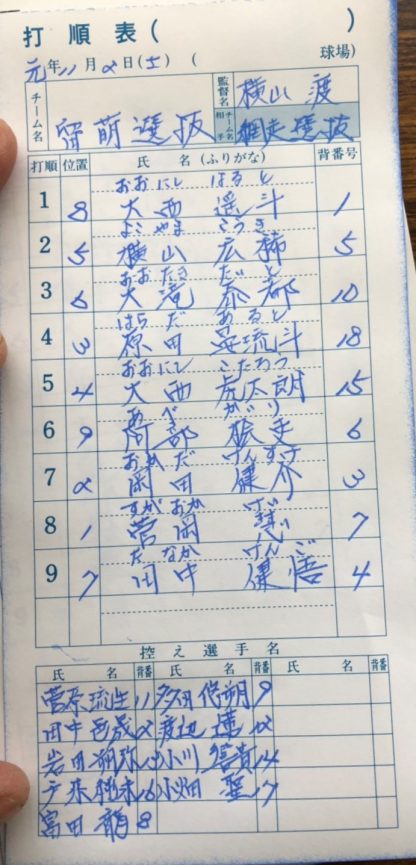 打順表( )
元年11月2日(土) ( 球場)
チーム名 留萌選抜 監督名 横山 渡
相手チーム名 網走選抜
打順 位置 氏 名(ふりがな) 背番号
おおにし はると
1 8 大西 遥斗 1
よこやま こうき
2 5 横山 広稀 5
おおたき だいと
3 6 大滝 泰都 10
はらだ あると
4 3 原田 流斗 18
おおにし こたろう
5 4 大西 虎太朗 15
あべ がい
6 9 阿部 6
おかだ けんすけ
7 2 岡田 健介 3
すがおか
8 1 菅岡 7
たなか けんご
9 7 田中 健悟 4
控え選手名
氏 名 背番 氏 名 背番 氏 名 背番
菅原流生 11 多田悠朔 9
田中 晟 2 渡辺 12
岩田朔弥 13 小川 14
戸来 16 小畑 聖 17
富田 龍 8